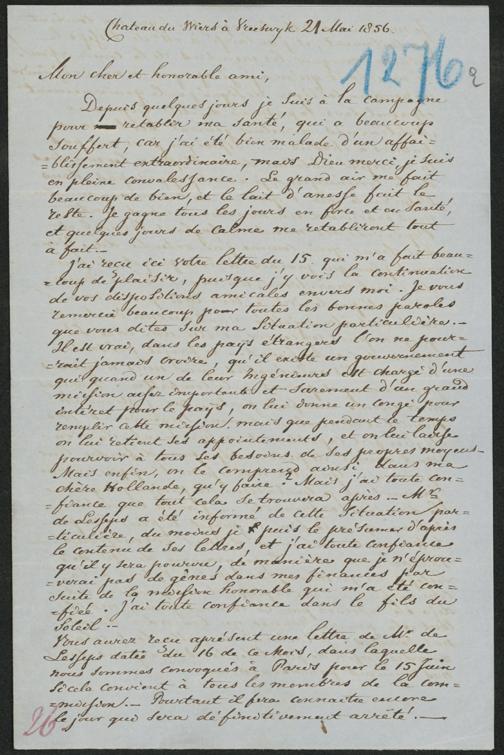 Chateau du Wiers à Vreeswyk 21 Mai 1856.
1276a
Mon cher et honorable ami,
Depuis quelques jours je suis à la campagne
pour retablir ma santé, qui a beaucoup
souffert, car j'ai été bien malade d'un affai-
=blissement extraordinaire, mais Dieu merci, je suis
en pleine convalessance. Le grand air me fait
beaucoup de bien, et le lait d'anesse fait le
reste. Je gagne tous les jours en force et en santé,
et quelques jours de calme me retabliront tout
à fait.—
J'ai reçu ici votre lettre du 15. qui m'a fait beau-
=coup de plaisir, puisque j'y vois la continuation
de vos dispositions amicales envers moi. Je vous
remercie beaucoup pour toutes les bonnes paroles
que vous dites sur ma situation particulière.—
Il est vrai, dans les pays étrangers l'on ne pour-
=rait jamais croire, qu'il existe un gouvernement
qui quand un de leur Ingénieures est chargé d'une
mission assez importante et surement d'un grand
intéret pour le pays, on lui donne un congé pour
remplir cette mission, mais que pendant le temps
on lui retient ses appointements, et on lui laisse
pourvoir à tous ses besoins de ses propres moyens.—
Mais enfin, on le comprend ainsi dans ma
chère Hollande, qu'y faire? Mais j'ai toute con-
=fiance que tout cela se trouvera après.— Mr.
de Lesseps a été informé de cette situation par-
=ticulière, du moins je puis le présumer d'après
le contenu de ses lettres, et j'ai toute confiance
qu'il y sera pourvu, de manière que je n'éprou-
=verai pas de gênes dans mes finances par
suite de la mission honorable qui m'a été con-
=fiée. J'ai toute confiance dans le fils du
Soleil.—
Vous aurez reçu aprésent une lettre de Mr. de
Lesseps datée du 16 de ce Mois, dans laquelle
nous sommes convoqués à Paris pour le 15 Juin
si cela convient à tous les membres de la com-
=mission.— Pourtant il fera connaitre encore
le jour qui sera définitivement arrêté.—
26